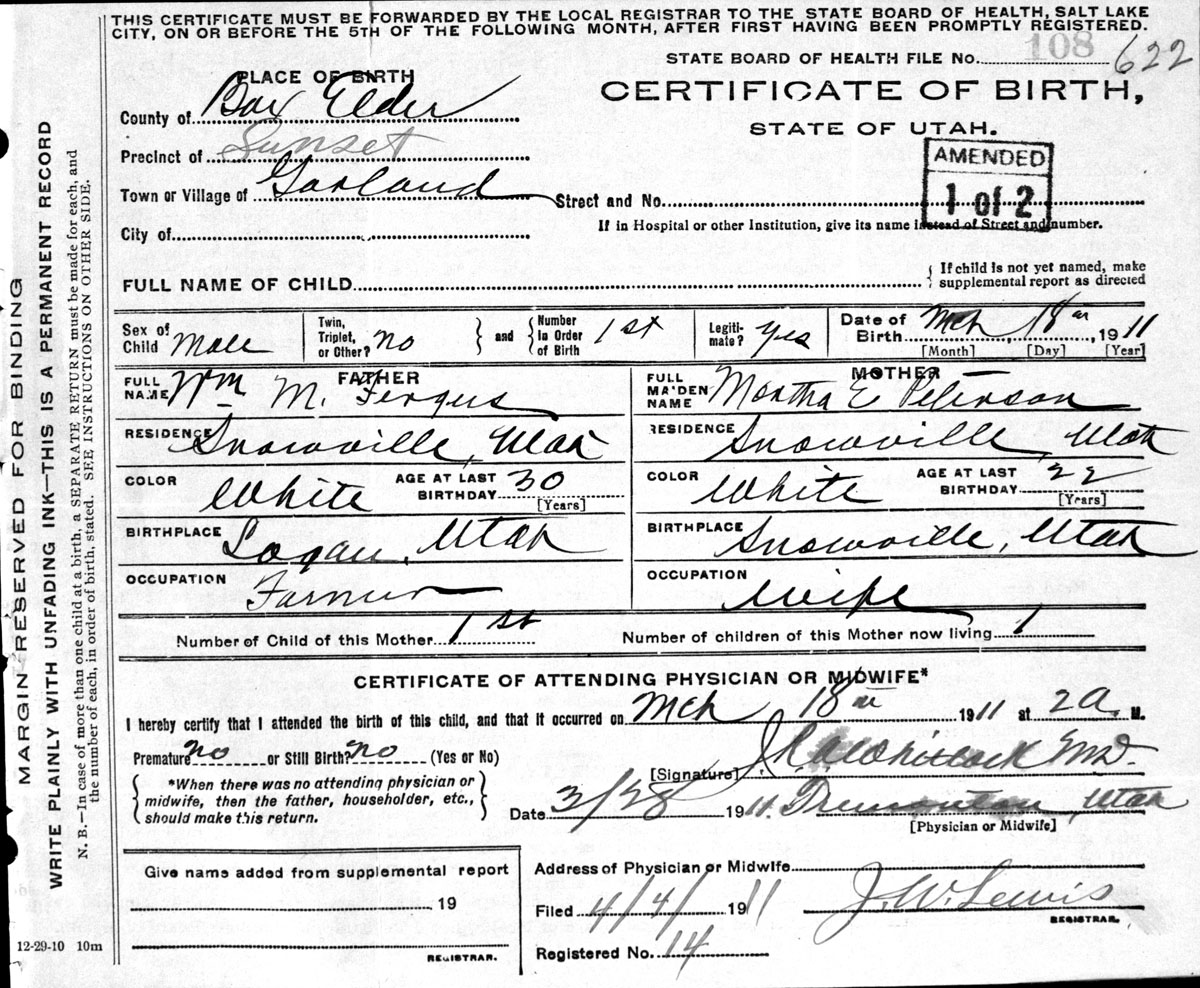 THIS CERTIFICATE MUST BE FORWARDED BY THE LOCAL REGISTRAR TO THE STATE BOARD OF HEALTH, SALT LAKE
CITY, ON OR BEFORE THE 5TH OF THE FOLLOWING MONTH, AFTER FIRST HAVING BEEN PROMPTLY REGISTERED.
STATE BOARD OF HEALTH FILE No. 108 622
PLACE OF BIRTH
CERTIFICATE OF BIRTH,
County of Box Elder
STATE OF UTAH.
Precinct of Sunset
AMENDED
1 of 2
Town or Village of Garland
Street and No.
City of
If in Hospital or other Institution, give its name instead of Street and number.
FULL NAME OF CHILD
{ If child is not yet named, make
supplemental report as directed
Sex of Child Male
Twin, Triplet, or Other? No } and { Number in Order of Birth 1st
Legitimate? Yes
Date of Birth Mch 18th 1911
[Month] [Day] [Year]
FATHER
FULL NAME Wm M. Fergus
MOTHER
FULL MAIDEN NAME Martha E Peterson
RESIDENCE Snowville, Utah
RESIDENCE Snowville, Utah
COLOR White AGE AT LAST BIRTHDAY 30 [Years]
COLOR White AGE AT LAST BIRTHDAY 22 [Years]
BIRTHPLACE Logan, Utah
BIRTHPLACE Snowville, Utah
OCCUPATION Farmer
OCCUPATION Wife
Number of Child of this Mother 1st
Number of children of this Mother now living 1
CERTIFICATE OF ATTENDING PHYSICIAN OR MIDWIFE*
I hereby certify that I attended the birth of this child, and that it occurred on Mch 18th 1911 at 2a. M.
Premature? No or Still Birth? No (Yes or No)
[Signature] J. R.
{ *When there was no attending physician or
midwife, then the father, householder, etc.,
should make this return. }
Date 3/28 1911. Tremonton, Utah
[Physician or Midwife]
Give name added from supplemental report
19
REGISTRAR.
Address of Physician or Midwife
Filed 4/4/ 1911 J. W. Lewis
REGISTRAR.
Registered No. 14
12-29-10 10m
MARGIN RESERVED FOR BINDING
WRITE PLAINLY WITH UNFADING INK—THIS IS A PERMANENT RECORD
N. B.—In case of more than one child at a birth, a SEPARATE RETURN must be made for each, and
the number of each, in order of birth, stated. SEE INSTRUCTIONS ON OTHER SIDE.